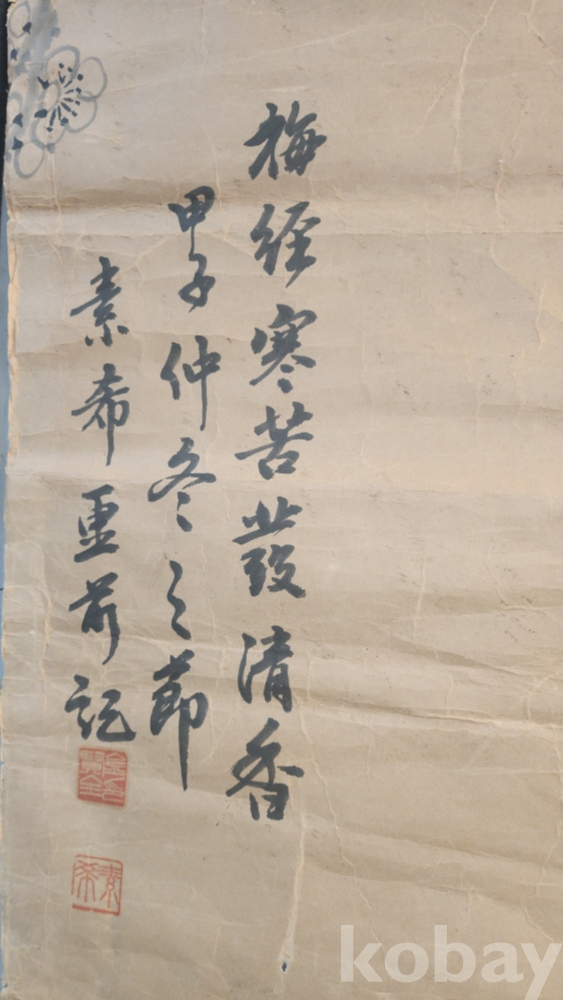 梅経寒苦發清香
甲子仲冬之節
素希重首記
素希
kobay